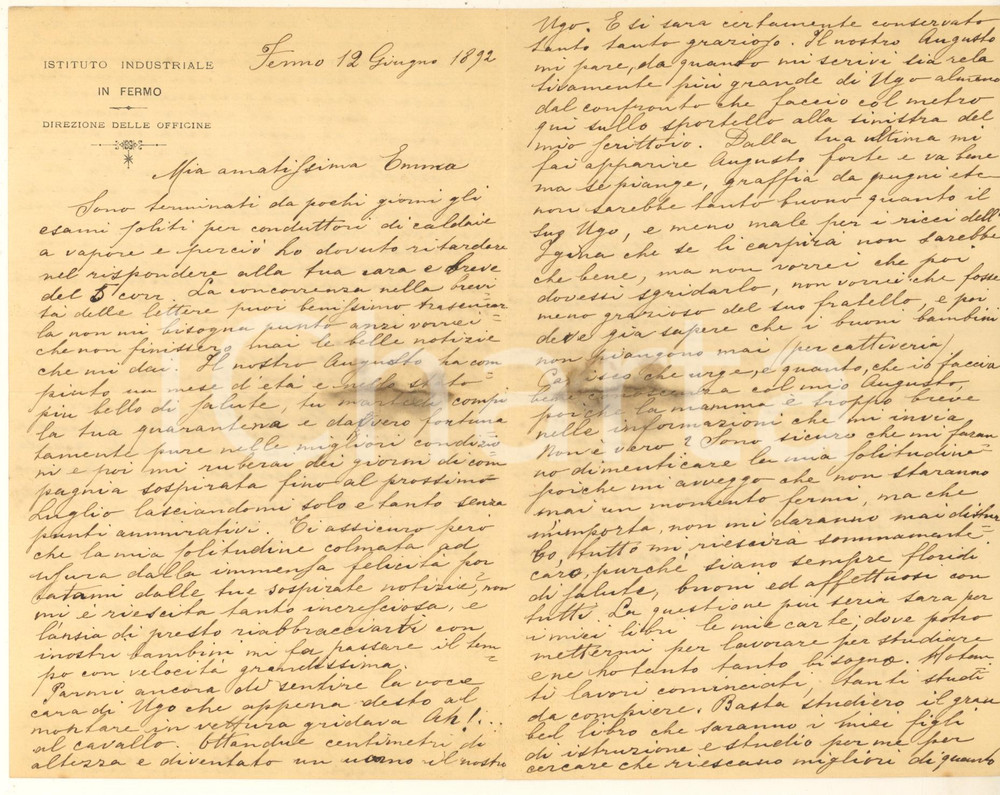 ISTITUTO INDUSTRIALE
IN FERMO
DIREZIONE DELLE OFFICINE
Fermo 12 Giugno 1892
Mia amatissima Emma
Sono terminati da pochi giorni gli
esami soliti per conduttori di caldaie
a vapore e perciò ho dovuto ritardare
nel rispondere alla tua cara e breve
del 5 corr. La concorrenza nella brevi
tà delle lettere puoi benissimo trascurar
la non mi bisogna punto anzi vorrei
che non finissero mai le belle notizie
che mi dai. Il nostro Augusto ha com
piuto un mese d'età e nello stato
più bello di salute, tu martedì compi
la tua quarantena e davvero fortuna
tamente pure nelle migliori condizio
ni e poi mi ruberai dei giorni di com
pagnia sospirata fino al prossimo
Luglio lasciandomi solo e tanto senza
punti ammirativi. Ti assicuro però
che la mia solitudine colmata ad
usura dalla immensa felicità por
tatami dalle tue sospirate notizie, non
mi è riescita tanto incresciosa, e
l'ansia di presto riabbracciarti con
i nostri bambini mi fa passare il tem
po con velocità grandissima.
Parmi ancora di sentire la voce
cara di Ugo che appena desto al
montare in vettura gridava Ah!...
al cavallo. Ottandue centimetri di
altezza e diventato un uomo il nostro
Ugo. E si sarà certamente conservato
tanto tanto grazioso. Il nostro Augusto
mi pare, da quanto mi scrivi sia rela
tivamente più grande di Ugo almeno
dal confronto che faccio col metro
qui sullo sportello alla sinistra del
mio scrittoio. Dalla tua ultima mi
fai apparire Augusto forte e va bene
ma se piange, graffia da pugni etc
non sarebbe tanto buono quanto il
suo Ugo, e meno male per i ricci dell'
Igina che se li carpirà non sarebbe
che bene, ma non vorrei che poi
dovessi sgridarlo, non vorrei che fosse
meno grazioso del suo fratello, e poi
deve già sapere che i buoni bambini
non piangono mai (per cattiveria)
Capisco che urge, e quanto, che io faccia
bene conoscenza col mio Augusto,
poiché la mamma è troppo breve
nelle informazioni che mi invia
Non è vero? Sono sicuro che mi faran
no dimenticare la mia solitudine
poiché mi avveggo che non staranno
mai un momento fermi, ma che
m'importa, non mi daranno mai distur
bo, tutto mi riescirà sommamente
caro, purché siano sempre floridi
di salute, buoni ed affettuosi con
tutti. La questione più seria sarà per
i miei libri le mie carte; dove potrò
mettermi per lavorare per studiare
e ne ho tanto tanto bisogno. Ho tan
ti lavori cominciati, tanti studi
da compiere. Basta studierò il gran
bel libro che saranno i miei figli
di istruzione e studio per me per
cercare che riescano migliori di quanto